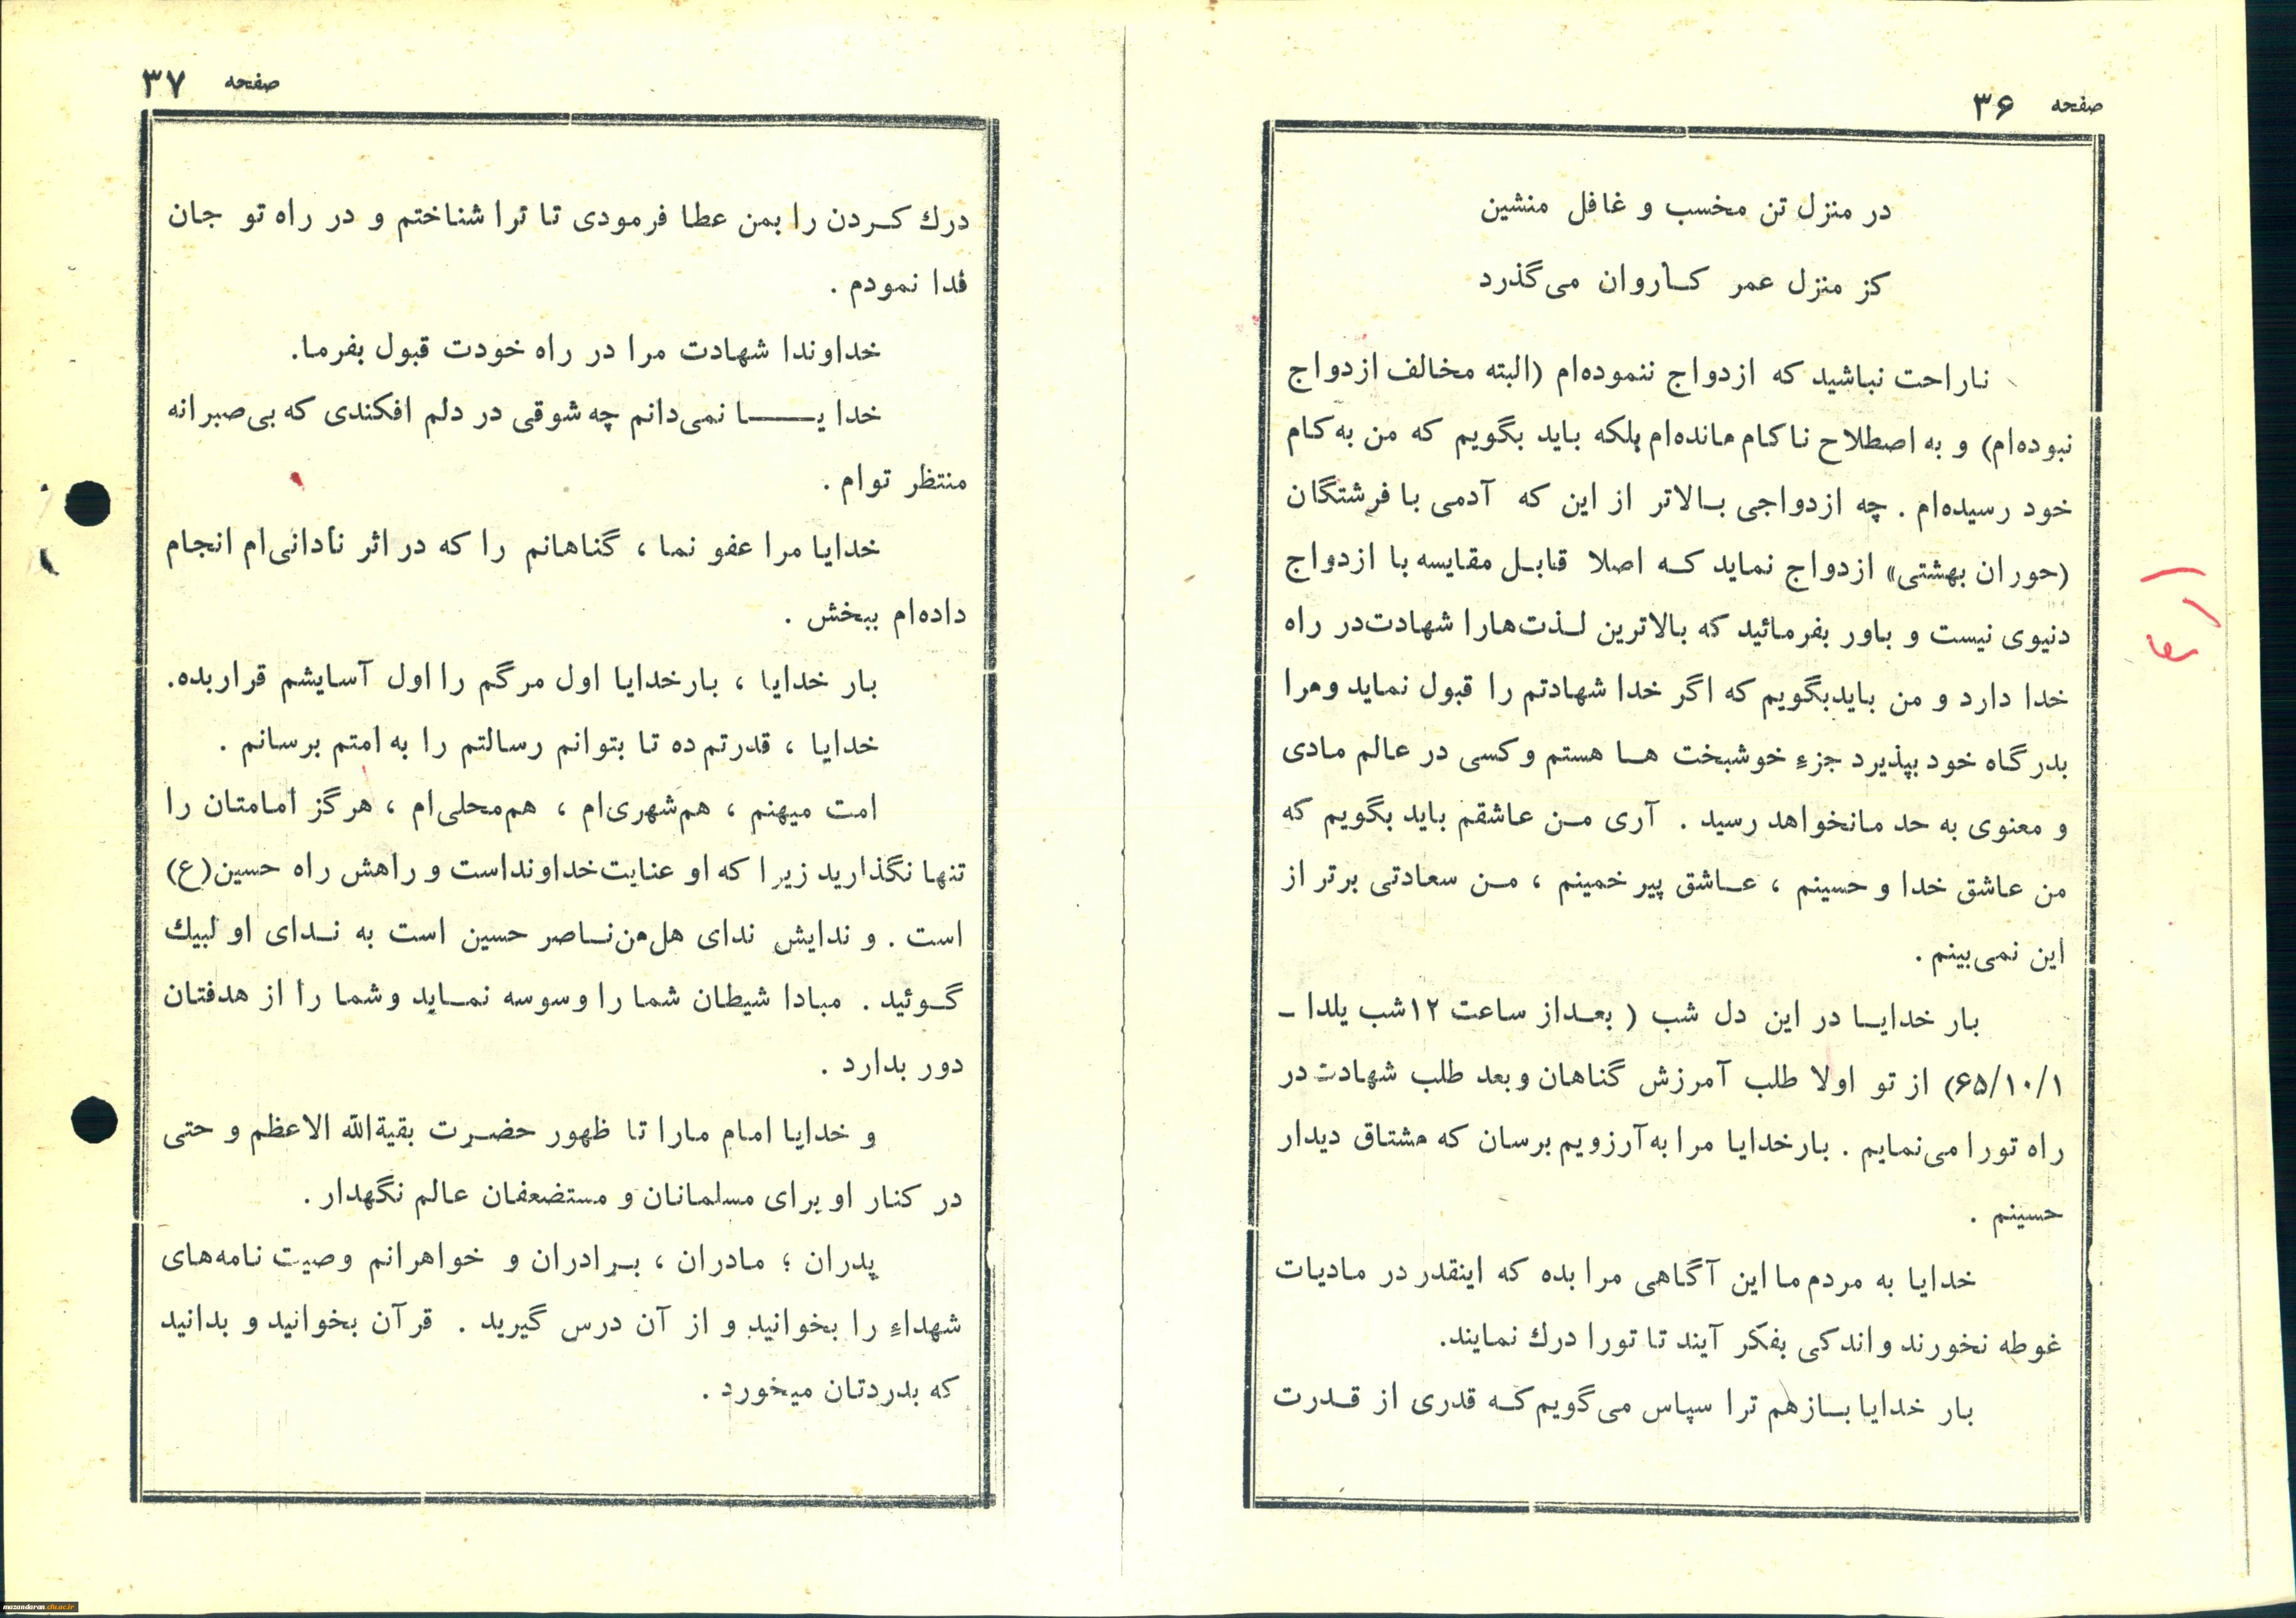 صفحه ۳۶
در منزل تن مخسب و غافل منشین
کز منزل عمر کاروان می‌گذرد
ناراحت نباشید که ازدواج ننموده‌ام (البته مخالف ازدواج
نبوده‌ام) و به اصطلاح ناکام مانده‌ام بلکه باید بگویم که من به کام
خود رسیده‌ام . چه ازدواجی بالاتر از این که آدمی با فرشتگان
(حوران بهشتی» ازدواج نماید که اصلا قابل مقایسه با ازدواج
دنیوی نیست و باور بفرمائید که بالاترین لذت‌هارا شهادت‌در راه
خدا دارد و من بایدبگویم که اگر خدا شهادتم را قبول نماید ومرا
بدرگاه خود بپذیرد جزء خوشبخت ها هستم و کسی در عالم مادی
و معنوی به حد مانخواهد رسید . آری من عاشقم باید بگویم که
من عاشق خدا و حسینم ، عاشق پیر خمینم ، من سعادتی برتر از
این نمی‌بینم .
بار خدایا در این دل شب ( بعداز ساعت ۱۲شب یلدا ـ
۶۵/۱۰/۱) از تو اولا طلب آمرزش گناهان و بعد طلب شهادت در
راه تورا می‌نمایم . بارخدایا مرا به‌آرزویم برسان که مشتاق دیدار
حسینم .
خدایا به مردم ما این آگاهی مرا بده که اینقدر در مادیات
غوطه نخورند و اندکی بفکر آیند تا تورا درك نمایند.
بار خدایا بازهم ترا سپاس می‌گویم که قدری از قدرت
صفحه ۳۷
درك کردن را بمن عطا فرمودی تا ترا شناختم و در راه تو جان
فدا نمودم .
خداوندا شهادت مرا در راه خودت قبول بفرما.
خدایـــا نمی‌دانم چه شوقی در دلم افکندی که بی‌صبرانه
منتظر توام .
خدایا مرا عفو نما ، گناهانم را که در اثر نادانی‌ام انجام
داده‌ام ببخش .
بار خدایا ، بارخدایا اول مرگم را اول آسایشم قراربده.
خدایا ، قدرتم ده تا بتوانم رسالتم را به امتم برسانم .
امت میهنم ، هم‌شهری‌ام ، هم‌محلی‌ام ، هرگز امامتان را
تنها نگذارید زیرا که او عنایت‌خداونداست و راهش راه حسین(ع)
است . و ندایش ندای هل‌من‌ناصر حسین است به ندای او لبیك
گوئید . مبادا شیطان شما را وسوسه نماید و شما را از هدفتان
دور بدارد .
و خدایا امام مارا تا ظهور حضرت بقیةالله الاعظم و حتی
در کنار او برای مسلمانان و مستضعفان عالم نگهدار .
پدران ؛ مادران ، برادران و خواهرانم وصیت نامه‌های
شهداء را بخوانید و از آن درس گیرید . قرآن بخوانید و بدانید
که بدردتان میخورد .
mazandaran.cfu.ac.ir